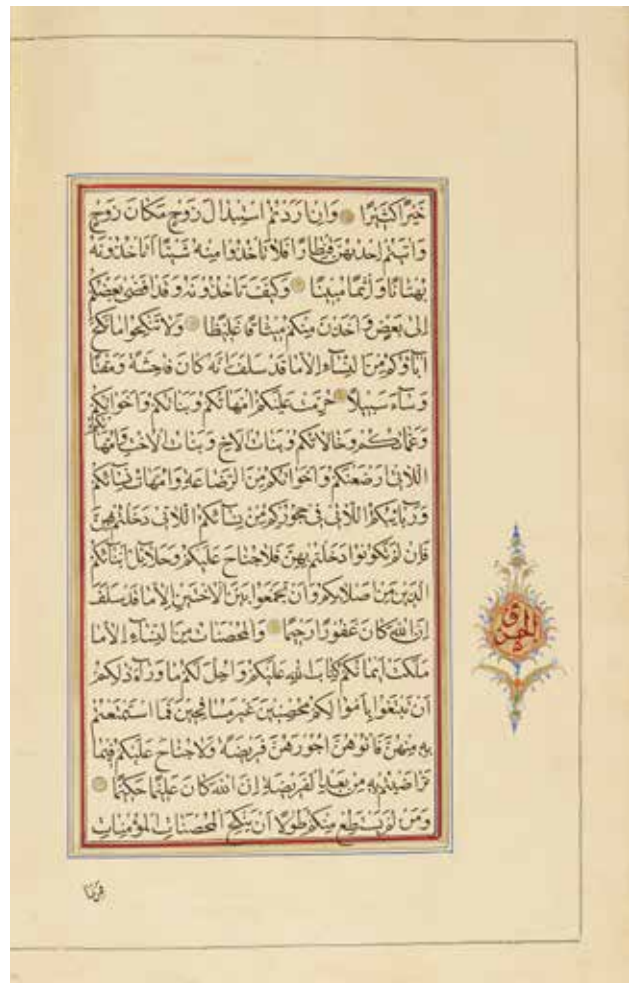 خَيْرًا كَثِيرًا وَاِنْ اَرَدْتُمُ اسْتِبْدَالَ زَوْجٍ مَكَانَ زَوْجٍ
وَاٰتَيْتُمْ اِحْدٰيهُنَّ قِنْطَارًا فَلَا تَأْخُذُوا مِنْهُ شَيْئًا اَتَأْخُذُونَهُ
بُهْتَانًا وَاِثْمًا مُبِينًا وَكَيْفَ تَأْخُذُونَهُ وَقَدْ اَفْضٰى بَعْضُكُمْ
اِلٰى بَعْضٍ وَاَخَذْنَ مِنْكُمْ مِيثَاقًا غَلِيظًا وَلَا تَنْكِحُوا مَا نَكَحَ
اٰبَاؤُكُمْ مِنَ النِّسَاءِ اِلَّا مَا قَدْ سَلَفَ اِنَّهُ كَانَ فَاحِشَةً وَمَقْتًا
وَسَاءَ سَبِيلًا حُرِّمَتْ عَلَيْكُمْ اُمَّهَاتُكُمْ وَبَنَاتُكُمْ وَاَخَوَاتُكُمْ
وَعَمَّاتُكُمْ وَخَالَاتُكُمْ وَبَنَاتُ الْاَخِ وَبَنَاتُ الْاُخْتِ وَاُمَّهَاتُكُمُ
اللَّاتِي اَرْضَعْنَكُمْ وَاَخَوَاتُكُمْ مِنَ الرَّضَاعَةِ وَاُمَّهَاتُ نِسَائِكُمْ
وَرَبَائِبُكُمُ اللَّاتِي فِي حُجُورِكُمْ مِنْ نِسَائِكُمُ اللَّاتِي دَخَلْتُمْ بِهِنَّ
فَاِنْ لَمْ تَكُونُوا دَخَلْتُمْ بِهِنَّ فَلَا جُنَاحَ عَلَيْكُمْ وَحَلَائِلُ اَبْنَائِكُمُ
الَّذِينَ مِنْ اَصْلَابِكُمْ وَاَنْ تَجْمَعُوا بَيْنَ الْاُخْتَيْنِ اِلَّا مَا قَدْ سَلَفَ
اِنَّ اللّٰهَ كَانَ غَفُورًا رَحِيمًا وَالْمُحْصَنَاتُ مِنَ النِّسَاءِ اِلَّا مَا
مَلَكَتْ اَيْمَانُكُمْ كِتَابَ اللّٰهِ عَلَيْكُمْ وَاُحِلَّ لَكُمْ مَا وَرَاءَ ذٰلِكُمْ
اَنْ تَبْتَغُوا بِاَمْوَالِكُمْ مُحْصِنِينَ غَيْرَ مُسَافِحِينَ فَمَا اسْتَمْتَعْتُمْ
بِهِ مِنْهُنَّ فَاٰتُوهُنَّ اُجُورَهُنَّ فَرِيضَةً وَلَا جُنَاحَ عَلَيْكُمْ فِيمَا
تَرَاضَيْتُمْ بِهِ مِنْ بَعْدِ الْفَرِيضَةِ اِنَّ اللّٰهَ كَانَ عَلِيمًا حَكِيمًا
وَمَنْ لَمْ يَسْتَطِعْ مِنْكُمْ طَوْلًا اَنْ يَنْكِحَ الْمُحْصَنَاتِ الْمُؤْمِنَاتِ